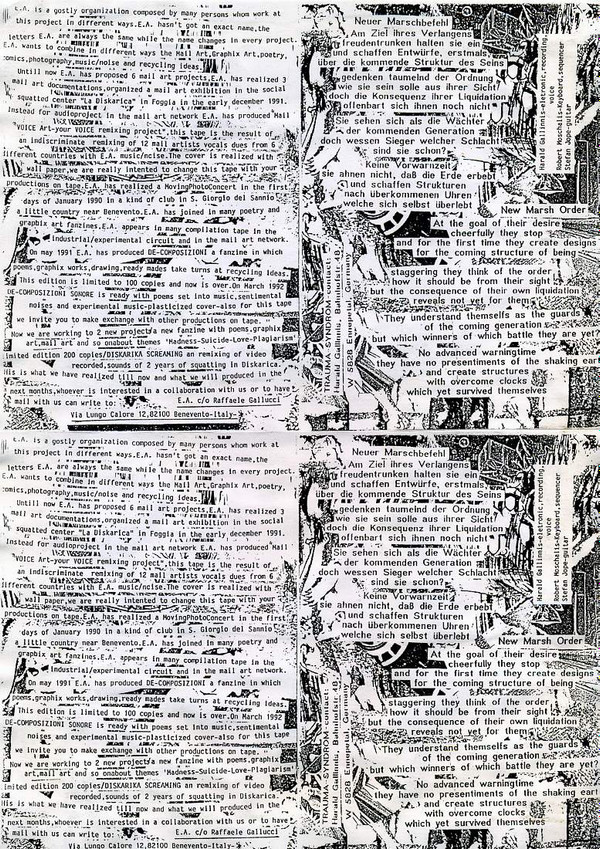 E.A. is a gostly organization composed by many persons whom work at
this project in different ways.E.A. hasn't got an exact name,the
letters E.A. are always the same while the name changes in every project.
E.A. wants to combine in different ways the Mail Art,Graphix Art,poetry,
comics,photography,music/noise and recycling ideas.
Untill now E.A. has proposed 6 mail art projects,E.A. has realized 3
mail art documentations,organized a mail art exhibition in the social
squatted center "La Diskarica" in Foggia in the early december 1991.
Instead for audioproject in the mail art network E.A. has produced"Mail
"VOICE Art-your VOICE remixing project",this tape is the result of
an indiscriminate remixing of 12 mail artists vocals dues from 6
different countries with E.A. music/noise.The cover is realized with
wall paper,we are really intented to change this tape with your
productions on tape.E.A. has realized a MovingPhotoConcert in the first
days of January 1990 in a kind of club in S. Giorgio del Sannio
a little country near Benevento.E.A. has joined in many poetry and
graphix art fanzines.E.A. appears in many compilation tape in the
industrial/experimental circuit and in the mail art network.
On may 1991 E.A. has produced DE-COMPOSIZIONI a fanzine in which
poems,graphix works,drawing,ready mades take turns at recycling ideas.
This edition is limited to 100 copies and now is over.On March 1992
DE-COMPOSIZIONI SONORE is ready with poems set into music,sentimental
noises and experimental music-plasticized cover-also for this tape
we invite you to make exchange with other productions on tape.
Now we are working to 2 new projects a new fanzine with poems,graphix
art,mail art and so onabout themes 'Madness-Suicide-Love-Plagiarism'
limited edition 200 copies/DISKARIKA SCREAMING an remixing of video
recorded,sounds of 2 years of squatting in Diskarica.
This is what we have realized till now and what we will produced in the
next months,whoever is interested in a collaboration with us or to have
mail with us can write to: E.A. c/o Raffaele Gallucci
Via Lungo Calore 12,82100 Benevento-Italy-
Neuer Marschbefehl
Am Ziel ihres Verlangens
freudentrunken halten sie ein
und schaffen Entwürfe, erstmals,
über die kommende Struktur des Seins
gedenken taumelnd der Ordnung
wie sie sein solle aus ihrer Sicht
doch die Konsequenz ihrer Liquidation
offenbart sich ihnen noch nicht
Sie sehen sich als die Wächter
der kommenden Generation
doch wessen Sieger welcher Schlacht
sind sie schon?
Keine Vorwarnzeit
sie ahnen nicht, daß die Erde erbebt
und schaffen Strukturen
nach überkommenen Uhren
welche sich selbst überlebt
Harald Gallinnis-eletronic,recording,
voice
Robert Moschalis-Keyboard,sequencer
Stefan Joppe-guitar
New Marsh Order
At the goal of their desire
cheerfully they stop
and for the first time they create designs
for the coming structure of being
staggering they think of the order
how it should be from their sight
but the consequence of their own liquidation
reveals not yet for them
They understand themselfs as the guards
of the coming generation
but which winners of which battle they are yet?
No advanced warningtime
they have no presentiments of the shaking eart
and create structures
with overcome clocks
which yet survived themselfs
TRAUMA-SYNDROM-contact:
Harald Gallinnis, Bahnhofstr. 48,
W 5828 Ennepetal, Germany
E.A. is a gostly organization composed by many persons whom work at
this project in different ways.E.A. hasn't got an exact name,the
letters E.A. are always the same while the name changes in every project.
E.A. wants to combine in different ways the Mail Art,Graphix Art,poetry,
comics,photography,music/noise and recycling ideas.
Untill now E.A. has proposed 6 mail art projects,E.A. has realized 3
mail art documentations,organized a mail art exhibition in the social
squatted center "La Diskarica" in Foggia in the early december 1991.
Instead for audioproject in the mail art network E.A. has produced"Mail
"VOICE Art-your VOICE remixing project",this tape is the result of
an indiscriminate remixing of 12 mail artists vocals dues from 6
different countries with E.A. music/noise.The cover is realized with
wall paper,we are really intented to change this tape with your
productions on tape.E.A. has realized a MovingPhotoConcert in the first
days of January 1990 in a kind of club in S. Giorgio del Sannio
a little country near Benevento.E.A. has joined in many poetry and
graphix art fanzines.E.A. appears in many compilation tape in the
industrial/experimental circuit and in the mail art network.
On may 1991 E.A. has produced DE-COMPOSIZIONI a fanzine in which
poems,graphix works,drawing,ready mades take turns at recycling ideas.
This edition is limited to 100 copies and now is over.On March 1992
DE-COMPOSIZIONI SONORE is ready with poems set into music,sentimental
noises and experimental music-plasticized cover-also for this tape
we invite you to make exchange with other productions on tape.
Now we are working to 2 new projects a new fanzine with poems,graphix
art,mail art and so onabout themes 'Madness-Suicide-Love-Plagiarism'
limited edition 200 copies/DISKARIKA SCREAMING an remixing of video
recorded,sounds of 2 years of squatting in Diskarica.
This is what we have realized till now and what we will produced in the
next months,whoever is interested in a collaboration with us or to have
mail with us can write to: E.A. c/o Raffaele Gallucci
Via Lungo Calore 12,82100 Benevento-Italy-
Neuer Marschbefehl
Am Ziel ihres Verlangens
freudentrunken halten sie ein
und schaffen Entwürfe, erstmals,
über die kommende Struktur des Seins
gedenken taumelnd der Ordnung
wie sie sein solle aus ihrer Sicht
doch die Konsequenz ihrer Liquidation
offenbart sich ihnen noch nicht
Sie sehen sich als die Wächter
der kommenden Generation
doch wessen Sieger welcher Schlacht
sind sie schon?
Keine Vorwarnzeit
sie ahnen nicht, daß die Erde erbebt
und schaffen Strukturen
nach überkommenen Uhren
welche sich selbst überlebt
Harald Gallinnis-eletronic,recording,
voice
Robert Moschalis-Keyboard,sequencer
Stefan Joppe-guitar
New Marsh Order
At the goal of their desire
cheerfully they stop
and for the first time they create designs
for the coming structure of being
staggering they think of the order
how it should be from their sight
but the consequence of their own liquidation
reveals not yet for them
They understand themselfs as the guards
of the coming generation
but which winners of which battle they are yet?
No advanced warningtime
they have no presentiments of the shaking eart
and create structures
with overcome clocks
which yet survived themselfs
TRAUMA-SYNDROM-contact:
Harald Gallinnis, Bahnhofstr. 48,
W 5828 Ennepetal, Germany